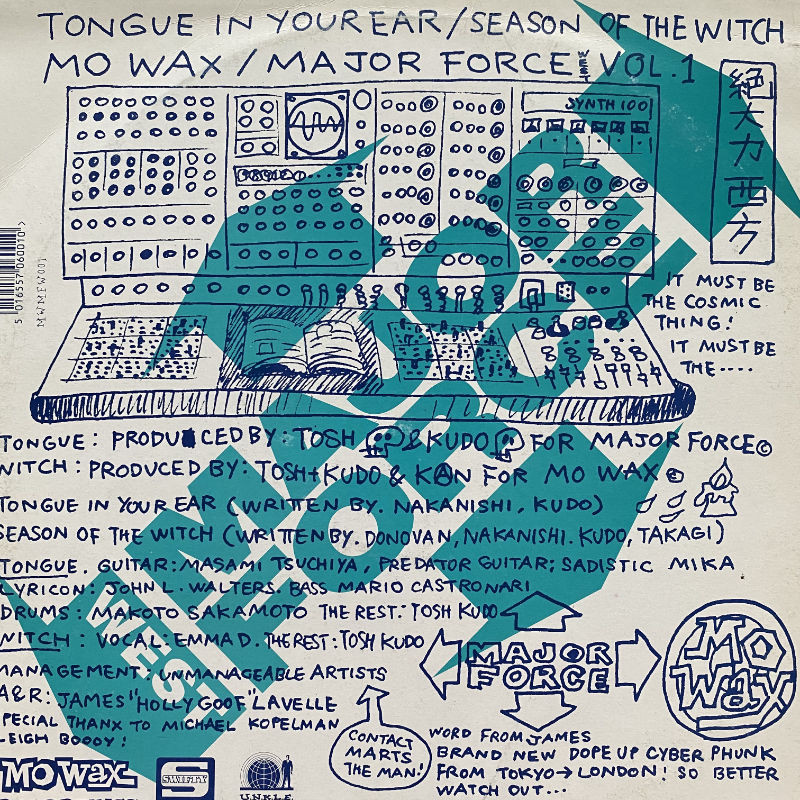 TONGUE IN YOUR EAR/SEASON OF THE WITCH
MO WAX / MAJOR FORCE VOL.1
SYNTH 100
絶
大
力
西
方
5 016557 060010 >
MWMFW001
IT MUST BE
THE COSMIC
THING!
IT MUST BE
THE....
MAJOR
FORCE
WEST
TONGUE: PRODUCED BY: TOSH & KUDO FOR MAJOR FORCE©
WITCH: PRODUCED BY: TOSH+KUDO & KAN FOR MO WAX
TONGUE IN YOUR EAR (WRITTEN BY. NAKANISHI, KUDO)
SEASON OF THE WITCH (WRITTEN BY. DONOVAN, NAKANISHI. KUDO, TAKAGI)
TONGUE. GUITAR: MASAMI TSUCHIYA, PREDATOR GUITAR; SADISTIC MIKA
LYRICON: JOHN L. WALTERS. BASS MARIO CASTRONARI
DRUMS: MAKOTO SAKAMOTO THE REST: TOSH KUDO
WITCH: VOCAL: EMMA D. THE REST: TOSH KUDO
MAJOR
FORCE
MO
WAX
MANAGEMENT: UNMANAGEABLE ARTISTS
A&R: JAMES "HOLLY GOOF" LAVELLE
SPECIAL THANX TO MICHAEL KOPELMAN
LEIGH BOODY!
CONTACT
MARTS
THE MAN!
WORD FROM JAMES
BRAND NEW DOPE UP CYBER PHUNK
FROM TOKYO→LONDON! SO BETTER
WATCH OUT...
MO WAX
SWIFTY
U.N.K.L.E